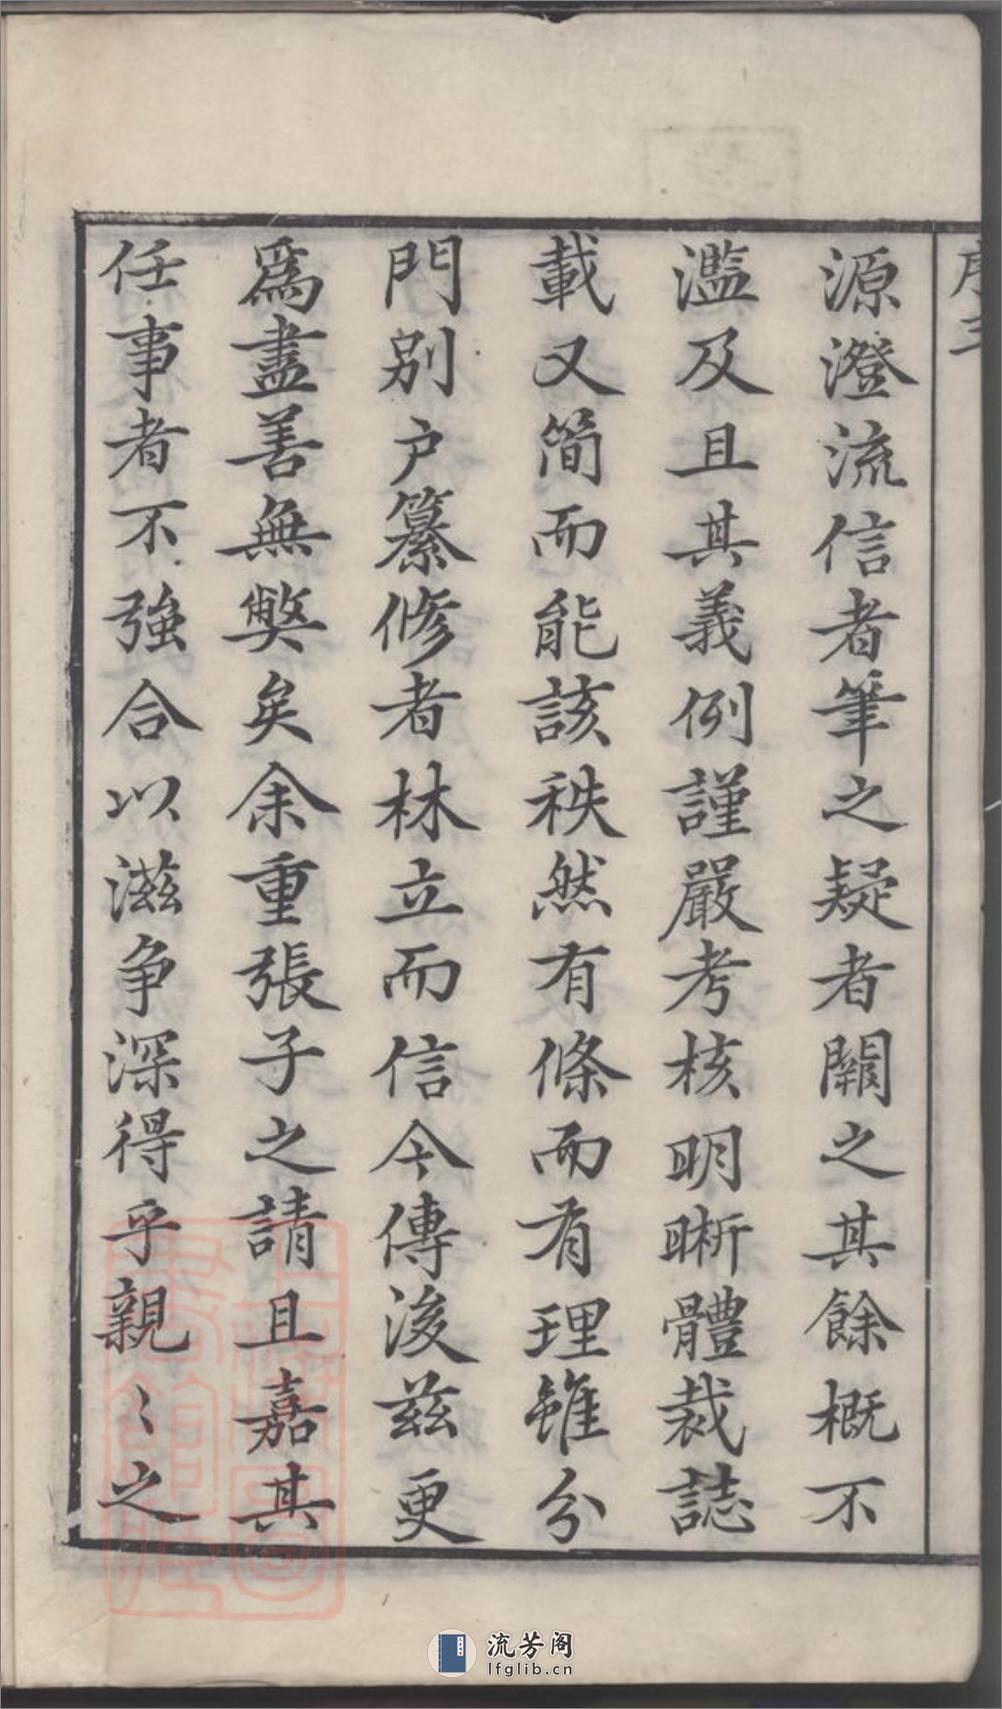 序三
源澄流信者筆之疑者闕之其餘概不
濫及且其義例謹嚴考核明晰體裁誌
載又简而能該秩然有條而有理雖分
門别户纂修者林立而信今傳後兹更
為盡善無獘矣余重張子之請且嘉其
任事者不強合以滋争深得乎親〻之
流芳阁
lfglib.cn